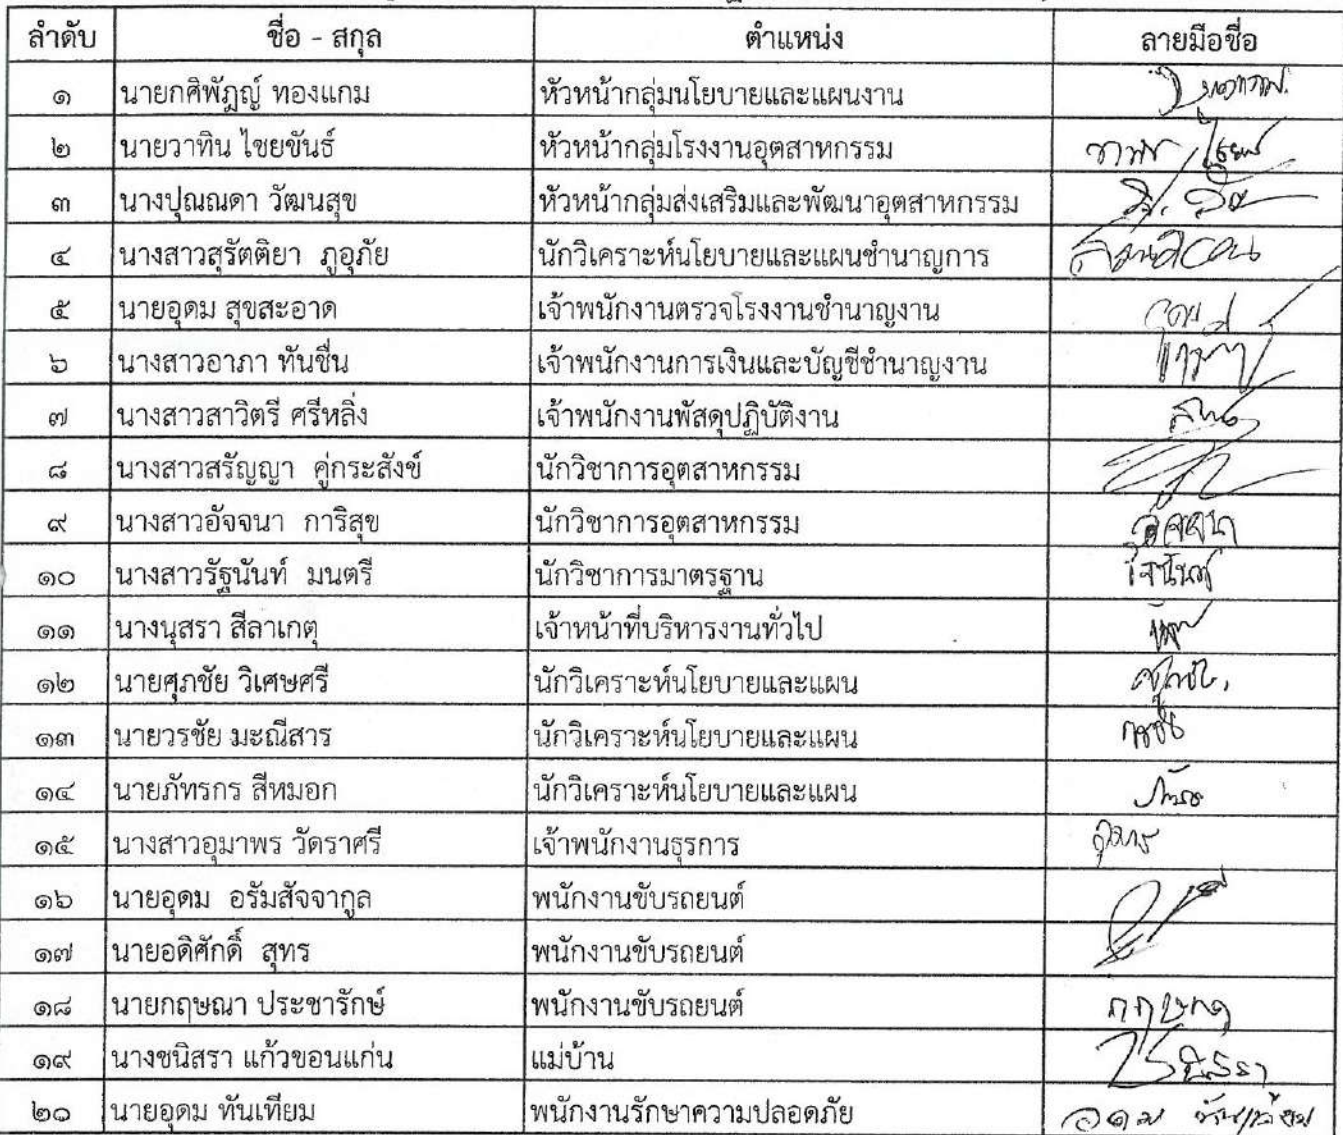 ลำดับ ชื่อ - สกุล ตำแหน่ง ลายมือชื่อ
๑ นายกศิพัฎญ์ ทองแกม หัวหน้ากลุ่มนโยบายและแผนงาน
๒ นายวาทิน ไชยขันธ์ หัวหน้ากลุ่มโรงงานอุตสาหกรรม
๓ นางปุณณดา วัฒนสุข หัวหน้ากลุ่มส่งเสริมและพัฒนาอุตสาหกรรม
๔ นางสาวสุรัตติยา ภูอุภัย นักวิเคราะห์นโยบายและแผนชำนาญการ
๕ นายอุดม สุขสะอาด เจ้าพนักงานตรวจโรงงานชำนาญงาน
๖ นางสาวอาภา ทันชื่น เจ้าพนักงานการเงินและบัญชีชำนาญงาน
๗ นางสาวสาวิตรี ศรีหลิ่ง เจ้าพนักงานพัสดุปฏิบัติงาน
๘ นางสาวสรัญญา คู่กระสังข์ นักวิชาการอุตสาหกรรม
๙ นางสาวอัจจนา การิสุข นักวิชาการอุตสาหกรรม อัจจนา
๑๐ นางสาวรัฐนันท์ มนตรี นักวิชาการมาตรฐาน
๑๑ นางนุสรา สีลาเกตุ เจ้าหน้าที่บริหารงานทั่วไป
๑๒ นายศุภชัย วิเศษศรี นักวิเคราะห์นโยบายและแผน
๑๓ นายวรชัย มะณีสาร นักวิเคราะห์นโยบายและแผน
๑๔ นายภัทรกร สีหมอก นักวิเคราะห์นโยบายและแผน
๑๕ นางสาวอุมาพร วัดราศรี เจ้าพนักงานธุรการ
๑๖ นายอุดม อรัมสัจจากูล พนักงานขับรถยนต์
๑๗ นายอดิศักดิ์ สุทร พนักงานขับรถยนต์
๑๘ นายกฤษณา ประชารักษ์ พนักงานขับรถยนต์
๑๙ นางชนิสรา แก้วขอนแก่น แม่บ้าน
๒๐ นายอุดม ทันเทียม พนักงานรักษาความปลอดภัย อุดม ทันเทียม